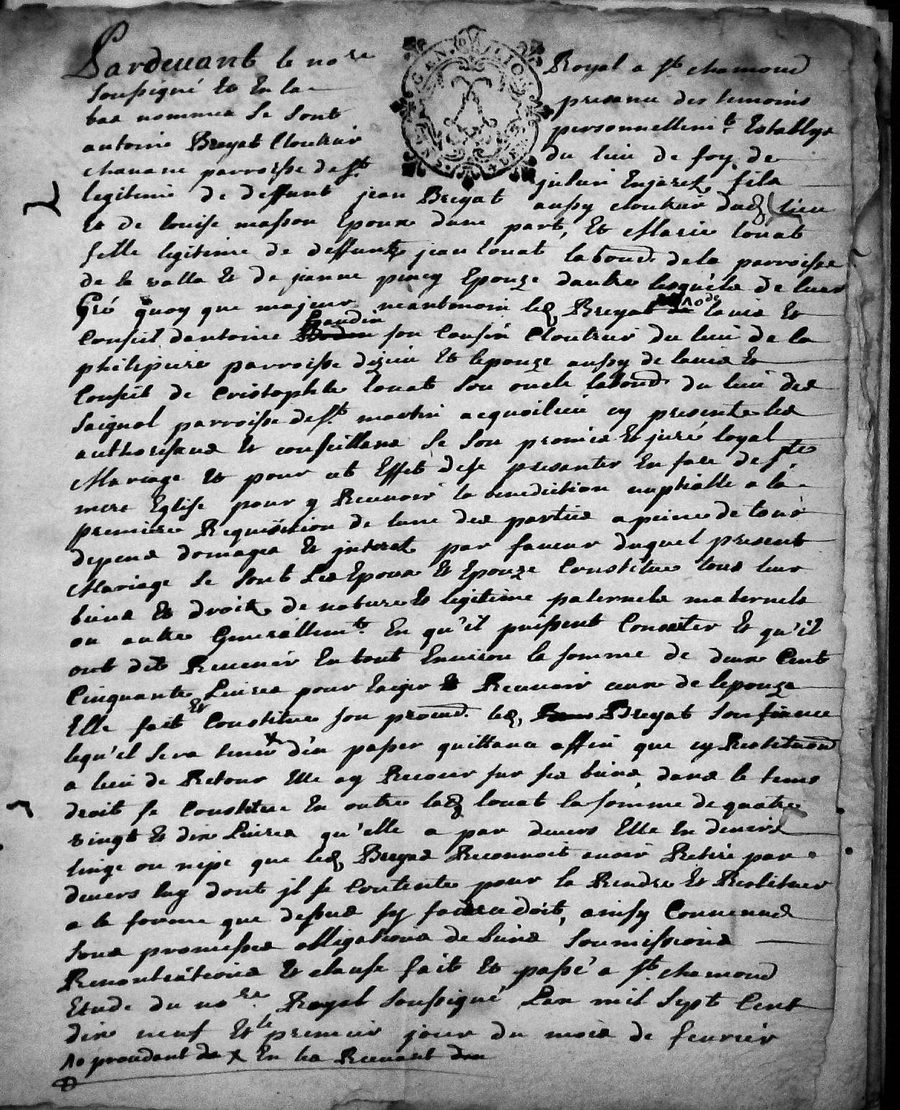 Pardevant le no.re Royal a S.t chamond
soussigné et en la presence des temoins
bas nommes se sont personnellem.t Establys
antoine Breyat Cloutier du lieu de foy de
chavane parroisse de S.t julien Enjarez fils
legitime de deffunt jean Breyat aussy cloutier dud lieu
et de louise masson Epoux dune part, Et Marie louat
fille legitime de deffunt jean louat laboud. de la parroisse
de la valla et de jeanne pincy Epouze dautre lesquels de leur
Gré quoy que majeur neantmoin led Breyat de lavis et
Conseil dantoine son Cousin Cloutier du lieu de la
parroisse dizieu et lepouze aussy de lavis et
Conseil de Cristophle louat son oncle laboud. du lieu de
saignol parroisse de S.t martin acquoilieu cy presents les
authorisans et conseillans se son promis et juré loyal
Mariage et pour cet Effet de se presenter En face de S.te
mere Eglise pour y Recevoir la benediction nuptialle a la
premiere Requisition de lune des parties a peine de tous
depens domages et interest par faveur duquel present
Mariage se sont les Epoux et Epouze Constitue tous leur
biens et droit de nature et legitime paternels maternels
ou autre Generallem.t En qu'il puissent Consister et qu'il
ont dit Revenir En tout Environ la somme de deux Cent
Cinquante Livres pour Exiger et Recevoir ceux de lepouze
Elle fait et Constitue son procud. led Breyat
lequ'il sera tenu x d'en passer quittance affin que cy Restitution
a lieu de Retour Elle cy Recouvr sur ses biens dans le tems
droit se Constitue En outre lad louat la somme de quatre
vingt et dix Livres qu'elle a par devers Elle En deniers
linge ou nipe que led Breyat Reconnoit avoir Retiré par
devers luy dont jl se Contente pour la Rendre et Restituer
a la forme que dessus sy faire doit, ainsy Convenus
sous promesses obligations de biens soumissions
Renontiations et clause fait et passé a S.t chamond
Etude du no.re Royal soussigné Lan mil sept Cent
dix neuf et le premier jour du mois de fevrier
x En les Recevant